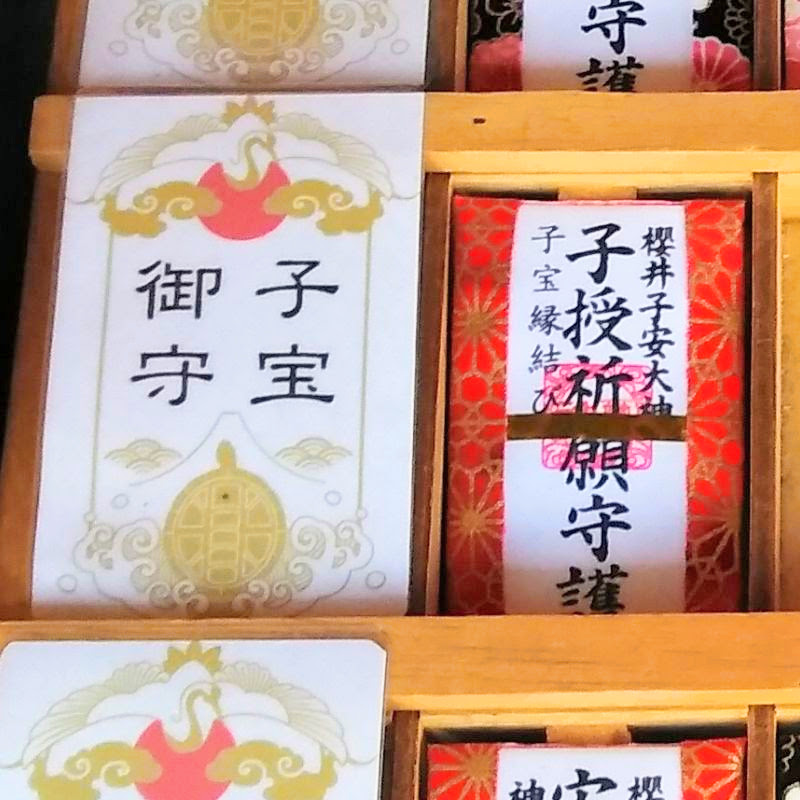 守護
子宝
御守
櫻井子安大神
子授祈願守護
子宝縁結び
櫻
神